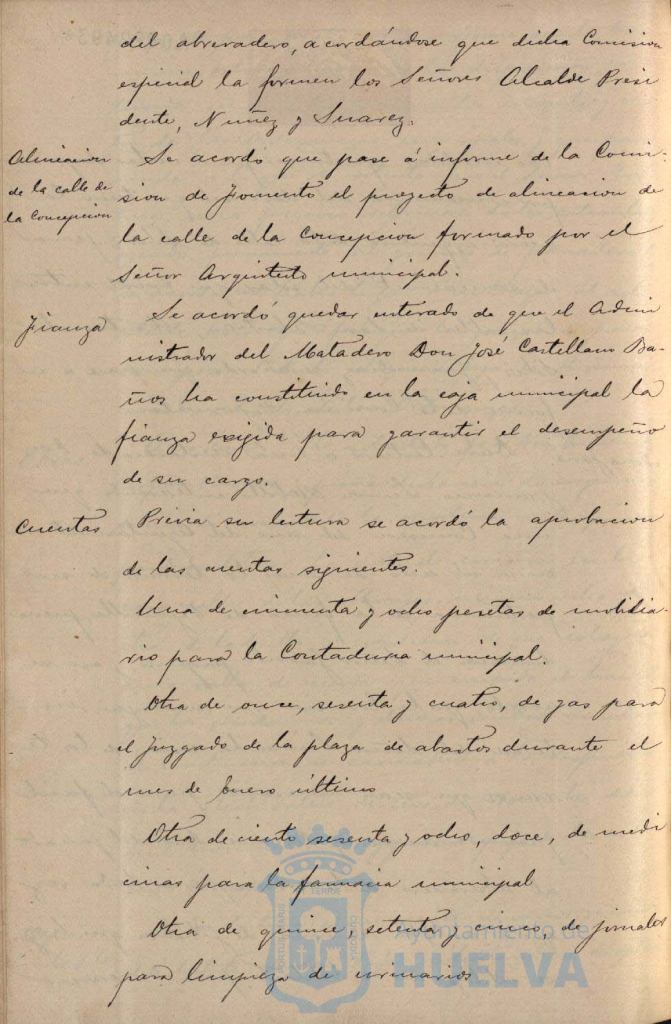 del abrevadero, acordándose que dicha Comision
especial la formen los Señores Alcalde Presi
dente, Nuñez y Suarez.
Alineacion
de la calle de
la Concepcion
Se acordo que pase á informe de la Comi-
sion de Fomento el proyecto de alineacion de
la calle de la Concepcion formado por el
Señor Arquitecto municipal.
Fianza
Se acordó quedar enterado de que el Admi
nistrador del Matadero Don José Castellano Ba-
ños ha constituido en la caja municipal la
fianza exigida para garantir el desempeño
de su cargo.
Cuentas
Previa su lectura se acordó la aprobacion
de las cuentas siguientes.
Una de cincuenta y ocho pesetas de mobilia-
rio para la Contaduria municipal.
Otra de once, sesenta y cuatro, de gas para
el Juzgado de la plaza de abastos durante el
mes de Enero último
Otra de ciento sesenta y ocho, doce, de medi
cinas para la farmacia municipal
Otra de quince, setenta y cinco, de jornales
para limpieza de urinarios
Ayuntamiento de
HUELVA